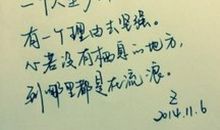 一个人至少
有一个理由去坚强。
心若没有栖息的地方,
到哪里都是在流浪。
Z
2014.11.6